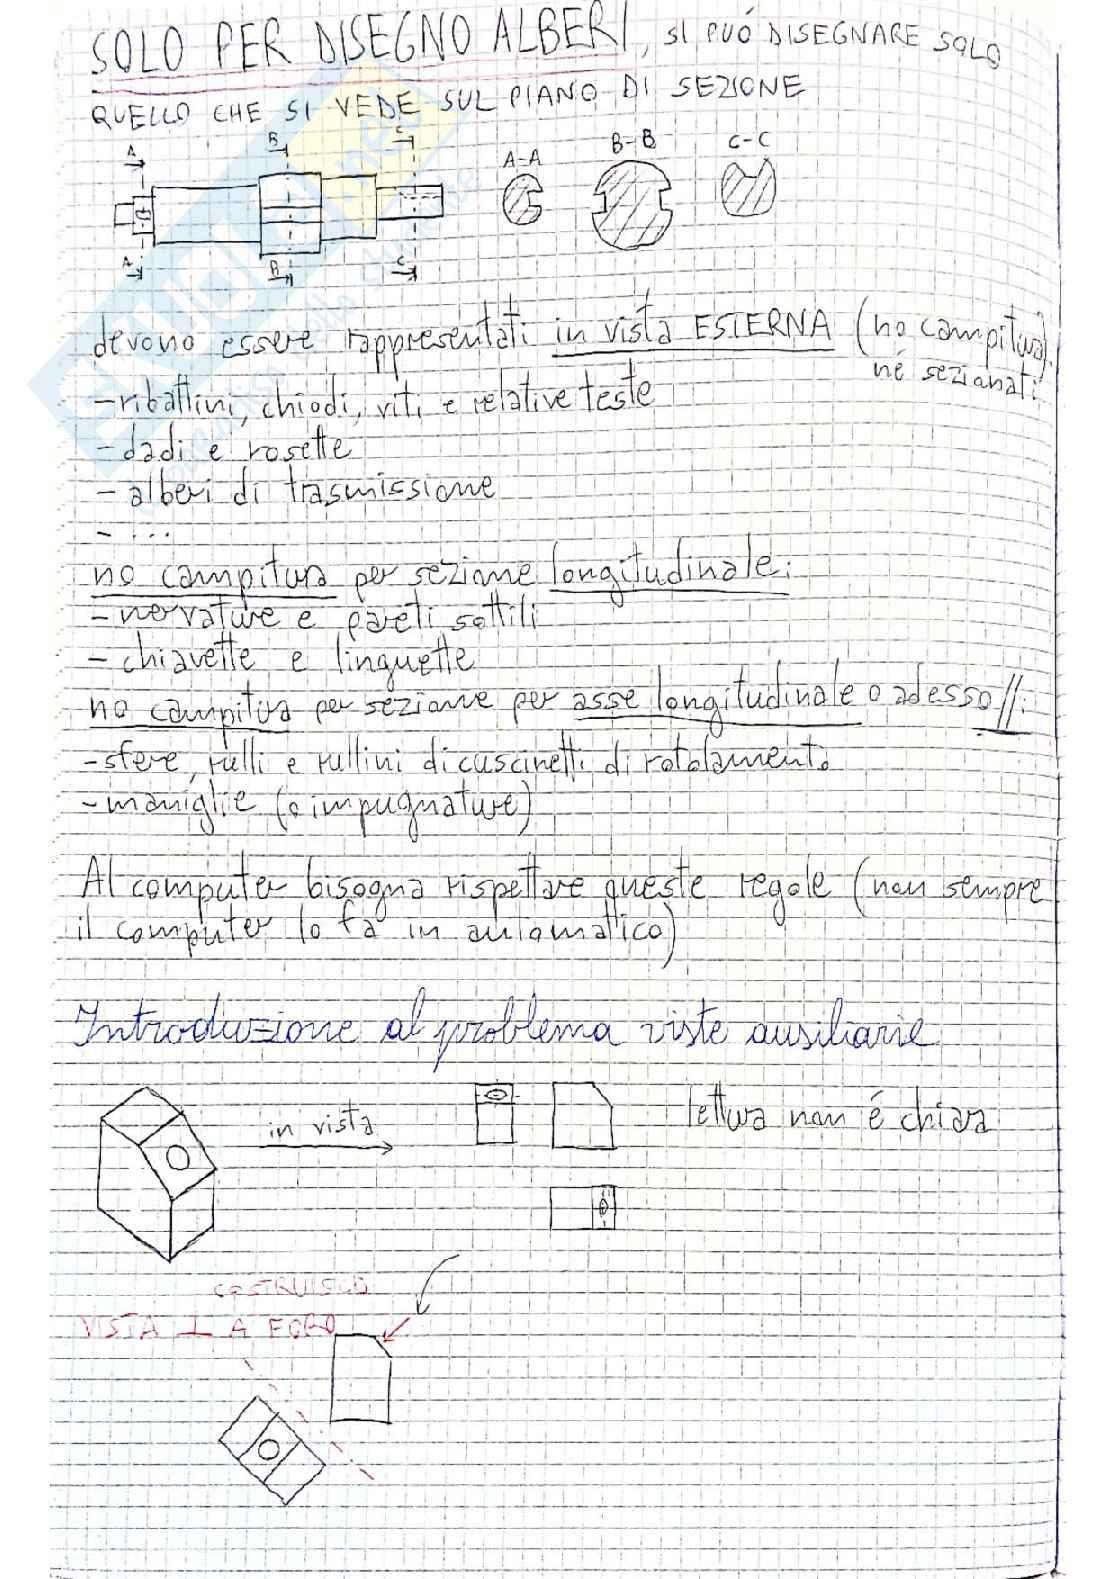 SOLO PER DISEGNO ALBERI, SI PUÓ DISEGNARE SOLO
QUELLO CHE SI VEDE SUL PIANO DI SEZIONE
A B C
A-A B-B C-C
A B C
devono essere rappresentati in vista ESTERNA (no campitura)
né sezionati:
- ribattini, chiodi, viti e relative teste
- dadi e rosette
- alberi di trasmissione
- ...
no campitura per sezione longitudinale:
- nervature e pareti sottili
- chiavette e linguette
no campitura per sezione per asse longitudinale o adesso //:
- sfere, rulli e rullini di cuscinetti di rotolamento
- maniglie (o impugnature)
Al computer bisogna rispettare queste regole (non sempre
il computer lo fa in automatico)
Introduzione al problema viste ausiliarie
in vista
lettura non é chiara
COSTRUISCO
VISTA ⊥ A FORO